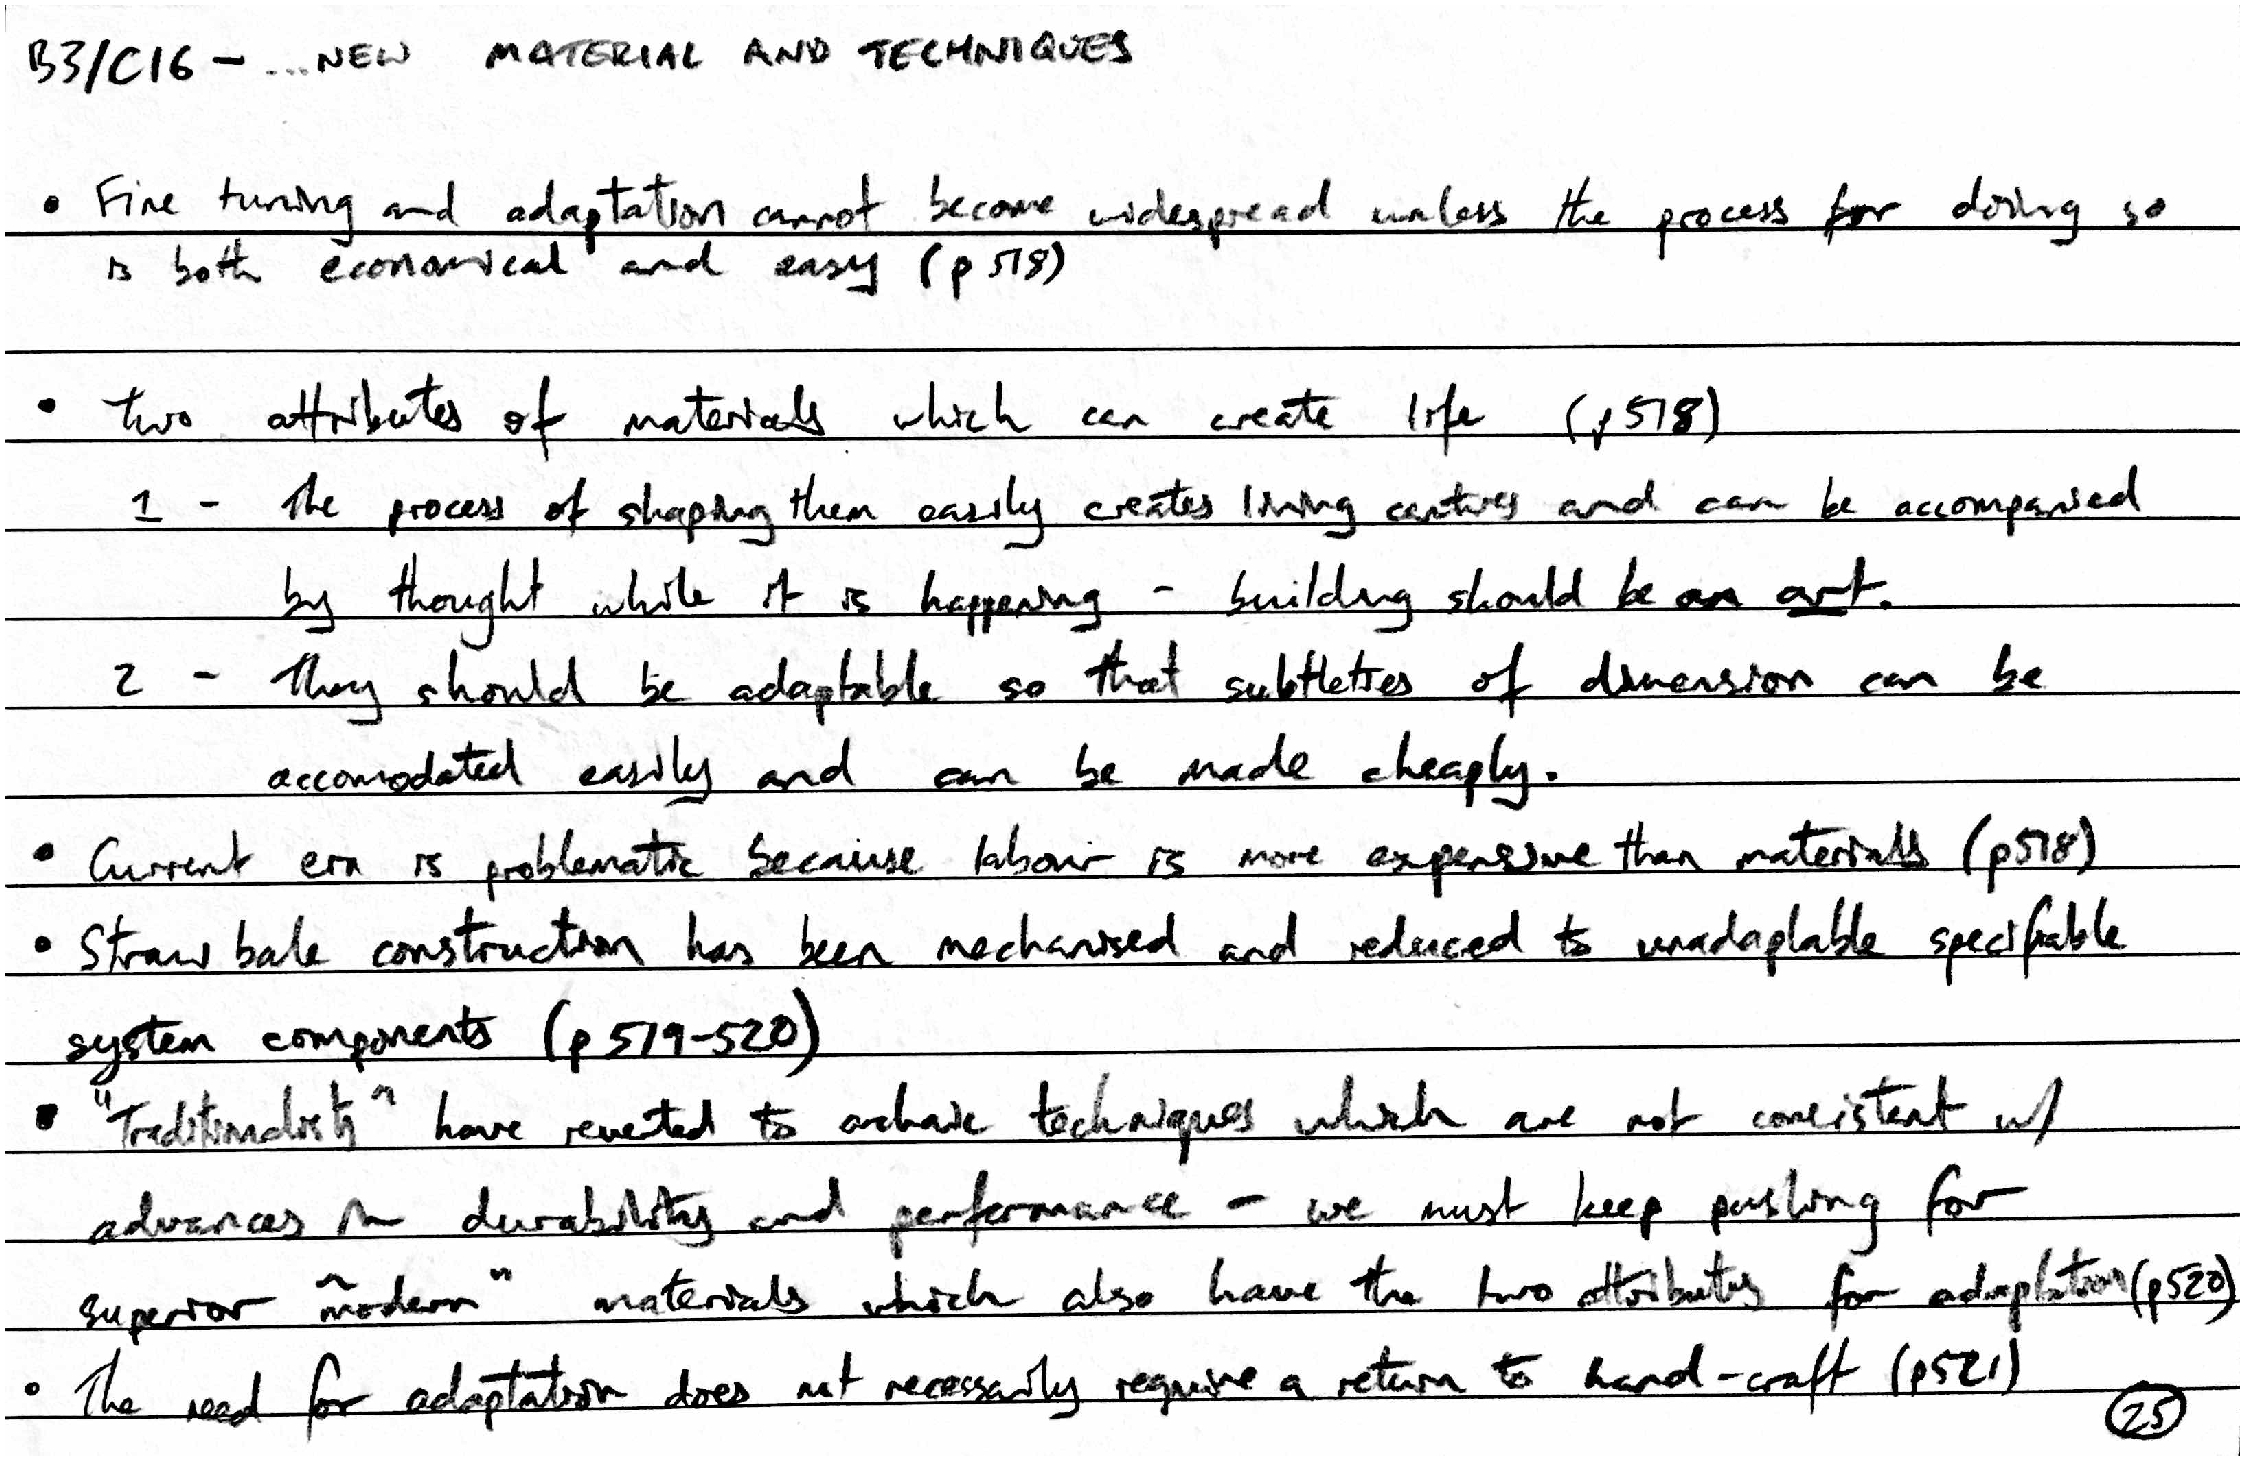 B3/C16 - ...NEW MATERIAL AND TECHNIQUES
• Fine tuning and adaptation cannot become widespread unless the process for doing so
is both economical and easy (p 518)
• Two attributes of materials which can create life (p518)
1 - The process of shaping them easily creates living centres and can be accompanied
by thought while it is happening - building should be an art.
2 - They should be adaptable so that subtleties of dimension can be
accomodated easily and can be made cheaply.
• Current era is problematic because labour is more expensive than materials (p518)
• Straw bale construction has been mechanised and reduced to unadaptable specifiable
system components (p 519-520)
• "Traditionalists" have reverted to archaic techniques which are not consistent w/
advances in durability and performance - we must keep pushing for
superior "modern" materials which also have the two attributes for adaptation (p520)
• The need for adaptation does not necessarily require a return to hand-craft (p521)
25